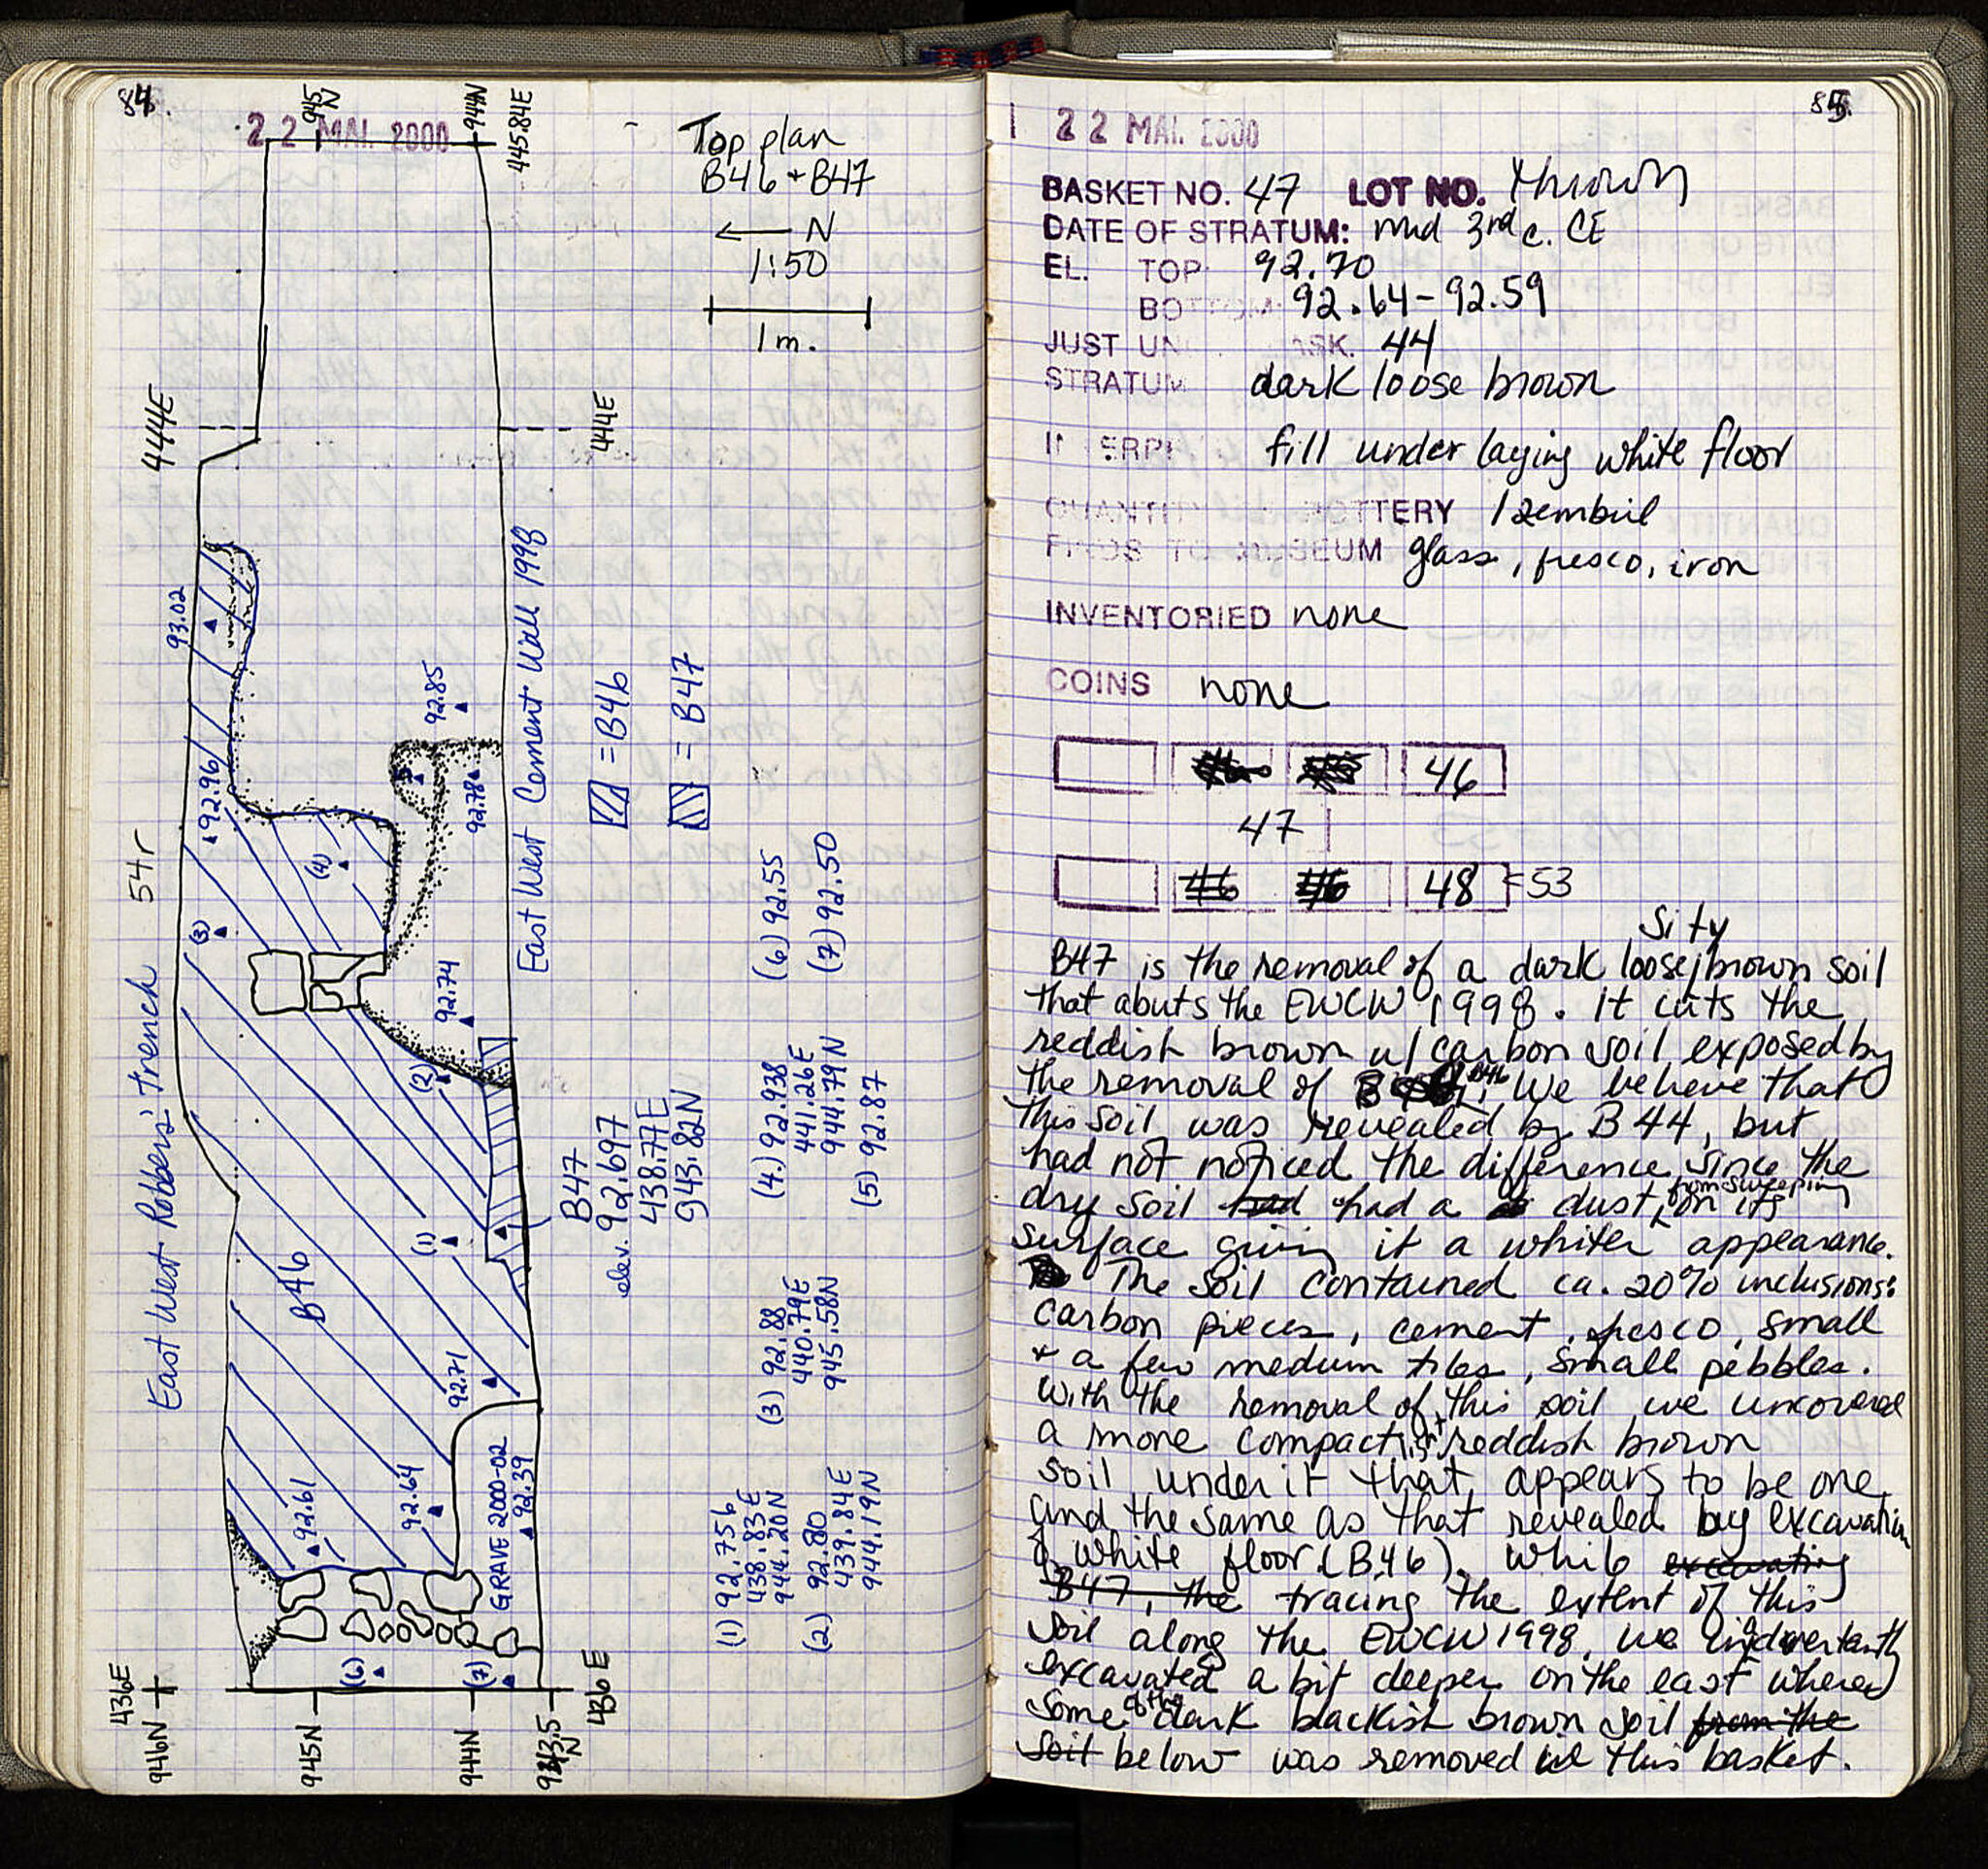 84.
22 MAI. 2000
945 N
944N
445.84E
Top plan
B46 + B47
← N
1:50
1 m.
444E
444E
93.02
92.96
54r
(4)
(3)
92.85
5
92.78
92.74
(2)
East West Cement Wall 1998
= B46
= B47
East West Robbers' Trench
B46
(1)
92.71
92.61
92.64
GRAVE 2000-02
92.39
(6)
(7)
436E
946N
945N
944N
943.5 N
436E
B47
elev. 92.697
438.77E
943.82N
(1) 92.756
438.83E
944.20N
(2) 92.80
439.84E
944.19N
(3) 92.88
440.79E
945.58N
(4.) 92.938
441.26E
944.79N
(5) 92.87
(6) 92.55
(7) 92.50
85.
22 MAI. 2000
BASKET NO. 47 LOT NO. thrown
DATE OF STRATUM: mid 3rd c. CE
EL. TOP 92.70
BOTTOM: 92.64-92.59
JUST UN ASK. 44
STRATUM dark loose brown
INTERPR fill under laying white floor
QUANTITY POTTERY 1 zembil
FINDS TO MUSEUM glass, fresco, iron
INVENTORIED none
COINS none
46
47
48 - 53
B47 is the removal of a dark loose, silty brown soil
that abuts the EWCW 1998. It cuts the
reddish brown w/ carbon soil exposed by
the removal of B46. We believe that
this soil was revealed by B44, but
had not noticed the difference since the
dry soil had had a dust from sweeping on its
surface giving it a whiter appearance.
The soil contained ca. 20% inclusions:
carbon pieces, cement, fresco, small
+ a few medium tiles, small pebbles.
With the removal of this soil we uncovered
a more compact light reddish brown
soil under it that appears to be one
and the same as that revealed by excavation
of white floor (B46). While excavating
B47, the tracing the extent of this
soil along the EWCW 1998, we inadvertently
excavated a bit deeper on the east where
some of the dark blackish brown soil from the
soil below was removed in this basket.